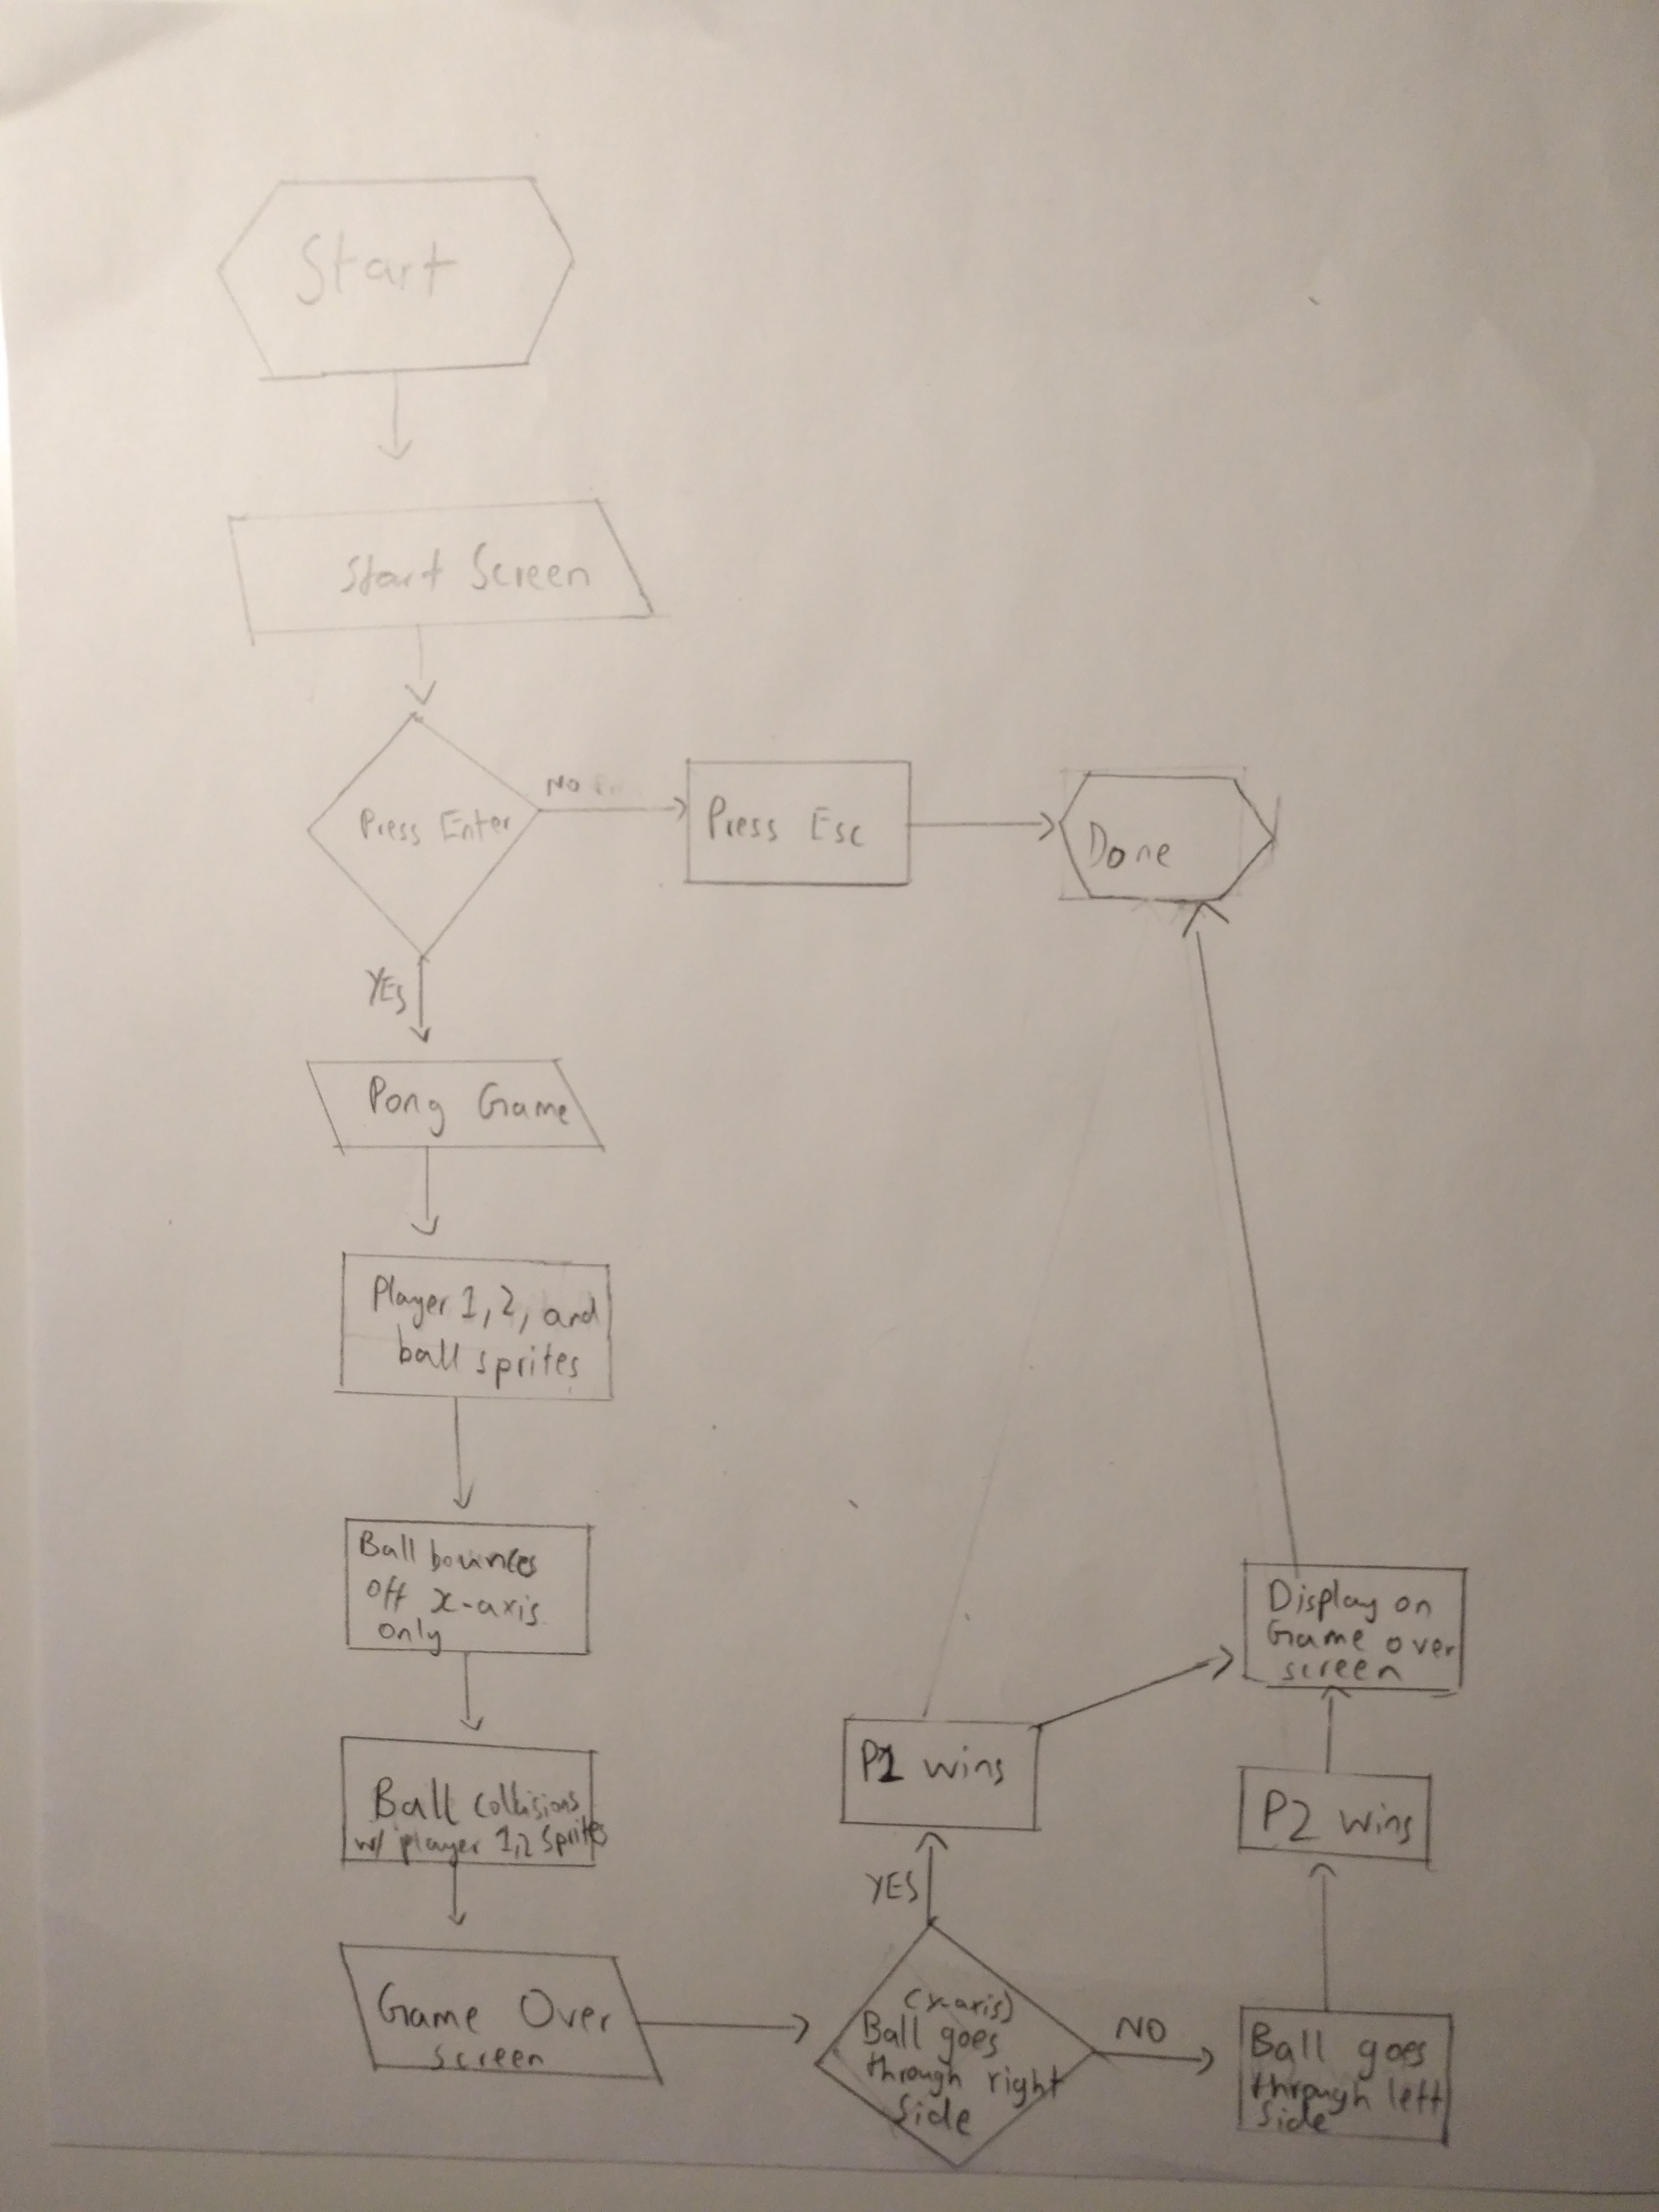 Start
Start Screen
Press Enter
NO
Press Esc
Done
YES
Pong Game
Player 1, 2, and
ball sprites
Ball bounces
off x-axis
only
Ball collisions
w/ player 1,2 sprites
Game Over
screen
(x-axis)
Ball goes
through right
side
YES
P1 wins
NO
Ball goes
through left
side
P2 wins
Display on
Game over
screen